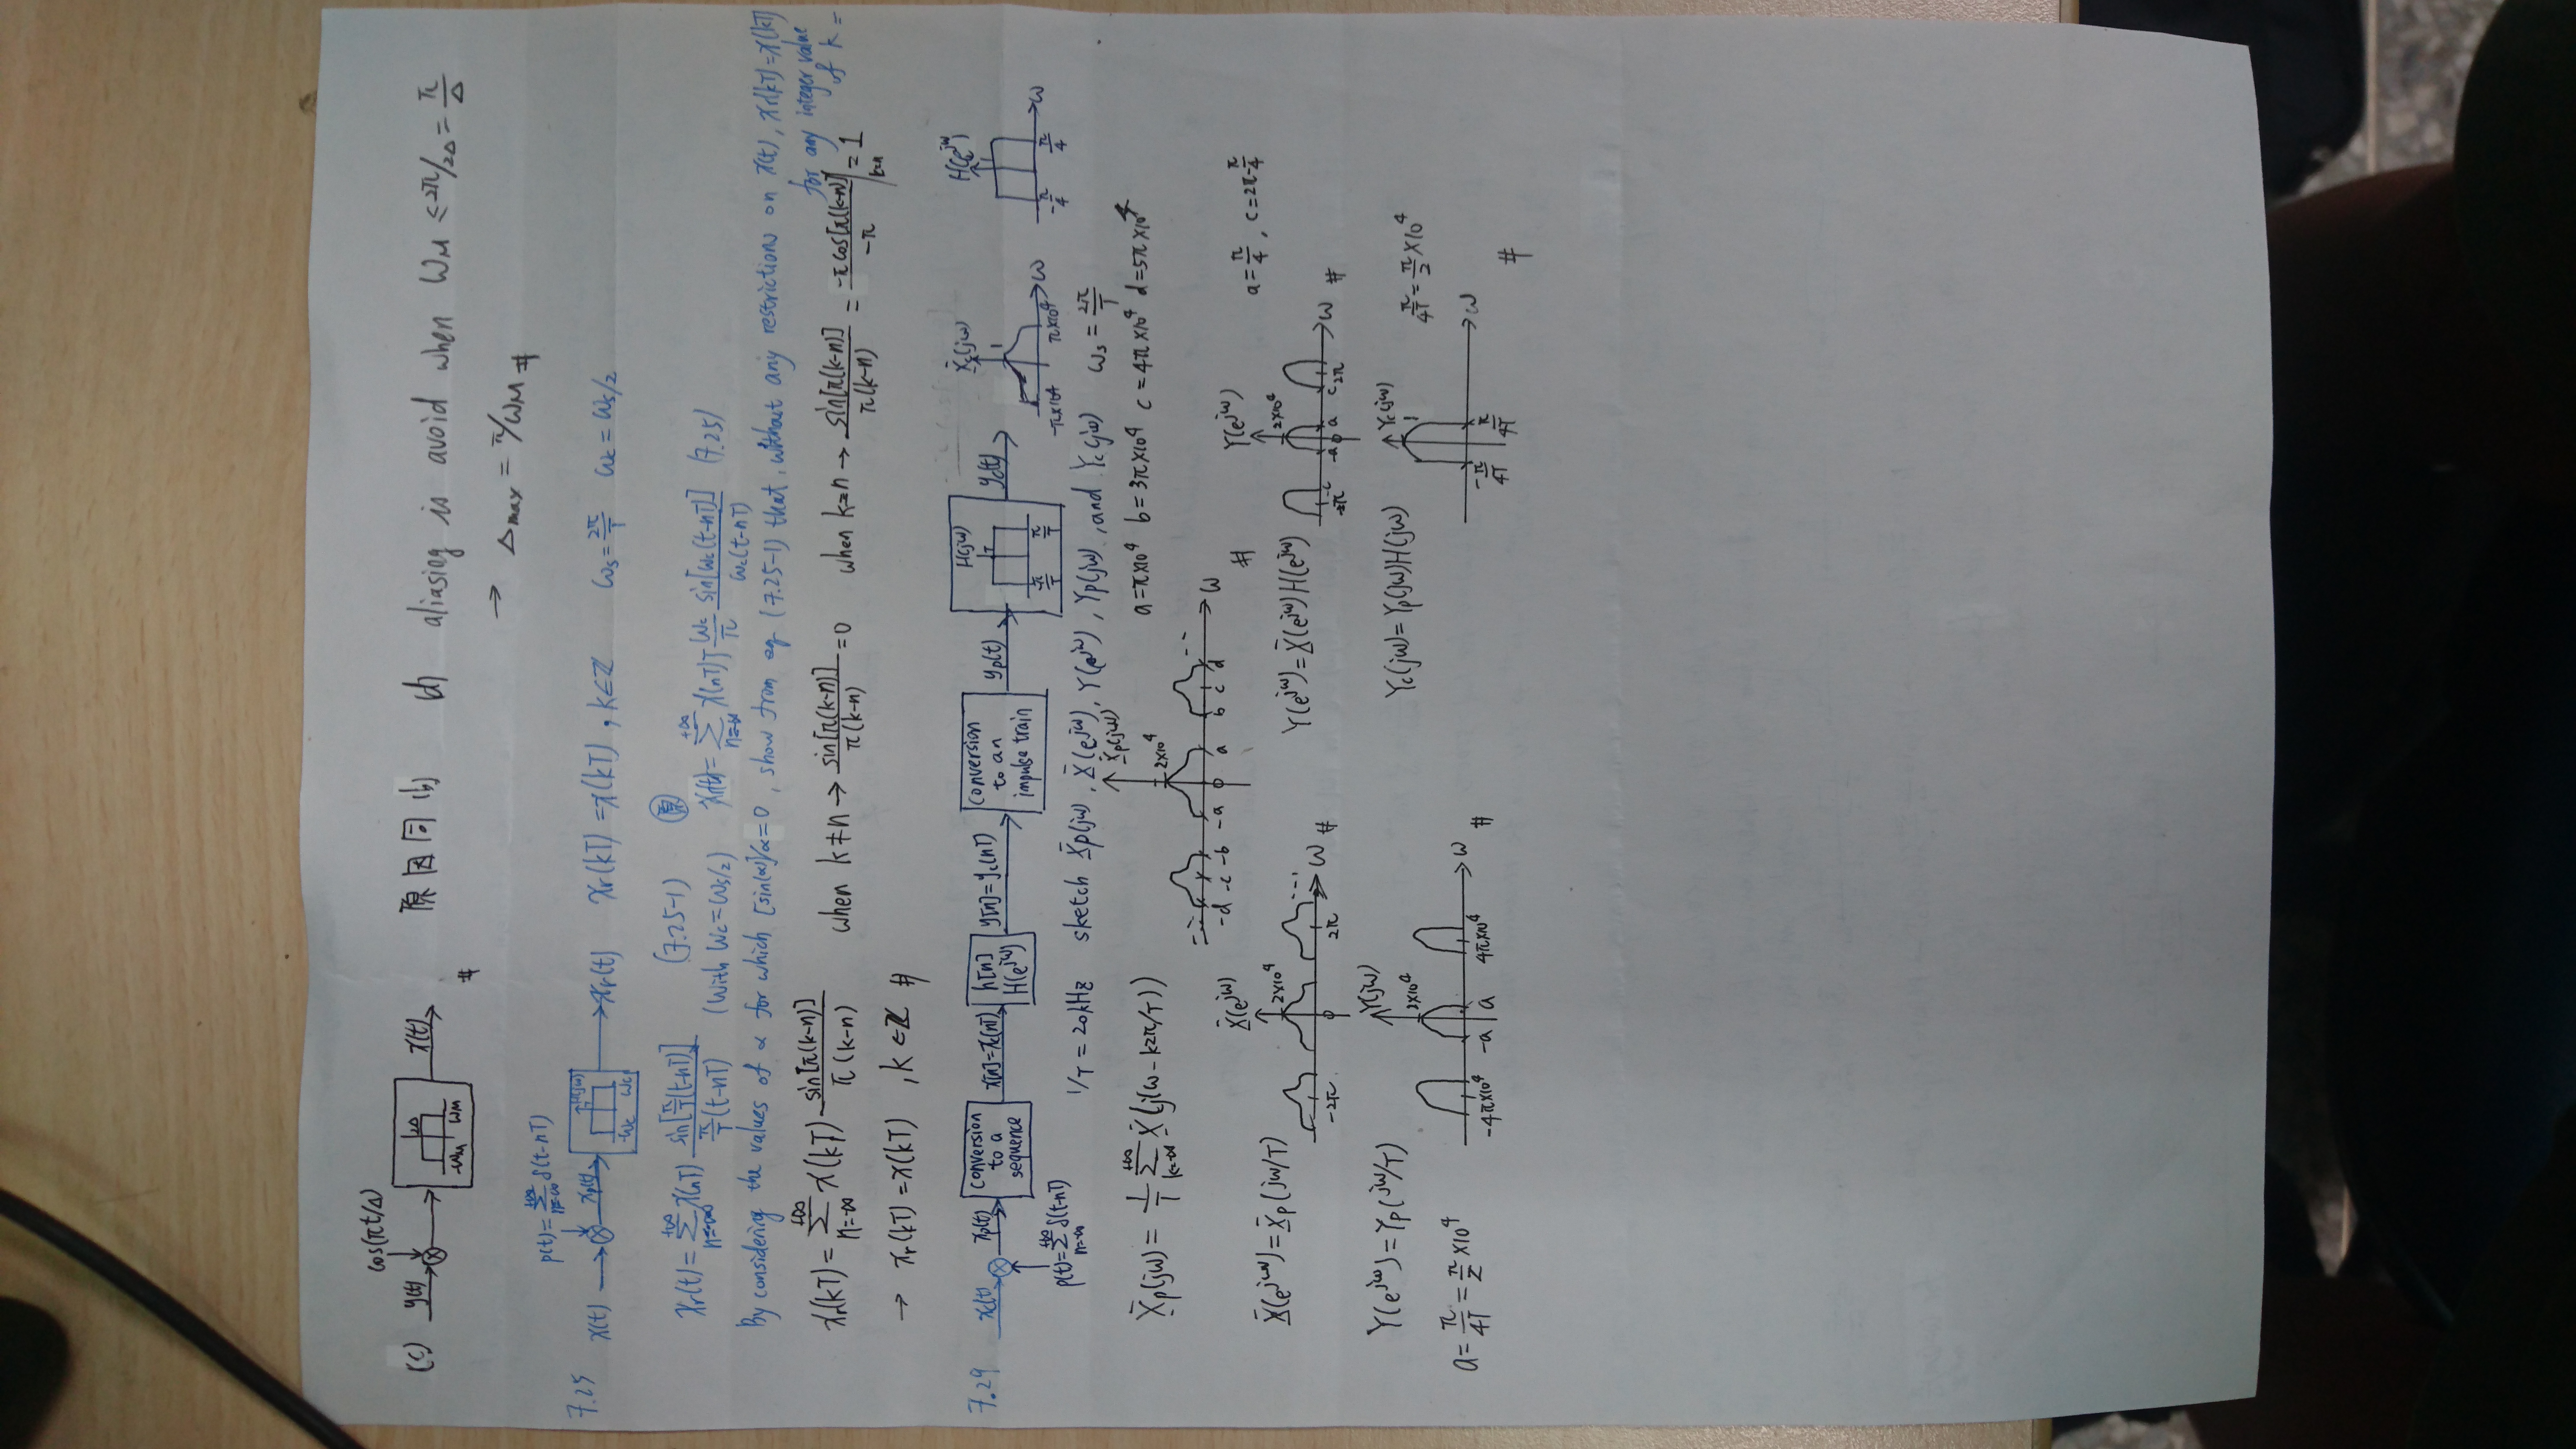 (c) y(t) cos(πt/Δ) x(t) 2Δ -ωM ωM # 原因同(b) (d) aliasing is avoid when ωM ≤ 2π/2Δ = π/Δ
→ Δmax = π/ωM #
7.25 x(t) p(t)=∑_{n=-∞}^{+∞} δ(t-nT) xp(t) H(jω) T -ωc ωc xr(t) xr(kT)=x(kT), k∈Z ωs=2π/T ωc=ωs/2
xr(t)=∑_{n=-∞}^{+∞} x(nT) sin[π/T(t-nT)] / π/T(t-nT) (7.25-1) (With ωc=ωs/2) 原 xr(t)=∑_{n=-∞}^{+∞} x(nT)T ωc/π sin[ωc(t-nT)] / ωc(t-nT) (7.25)
By considering the values of α for which [sin(α)]/α=0, show from eq (7.25-1) that, without any restriction on x(t), xr(kT)=x(kT)
for any integer value of k =
xr(kT)=∑_{n=-∞}^{+∞} x(kT) sin[π(k-n)] / π(k-n) when k≠n → sin[π(k-n)] / π(k-n) = 0 when k=n → sin[π(k-n)] / π(k-n) = -πcos[π(k-n)] / -π |_{k=n} = 1
→ xr(kT)=x(kT), k∈Z #
7.29 xc(t) xp(t) p(t)=∑_{n=-∞}^{+∞} δ(t-nT) Conversion to a sequence x[n]=xc(nT) h[n] H(e^{jω}) y[n]=yc(nT) Conversion to an impulse train yp(t) H(jω) T -π/T π/T yc(t) Xc(jω) 1 -π×10⁴ π×10⁴ ω H(e^{jω}) 1 -π/4 π/4 ω
1/T = 20kHz sketch Xp(jω), X(e^{jω}), Y(e^{jω}), Yp(jω), and Yc(jω) ωs = 2π/T
Xp(jω) = 1/T ∑_{k=-∞}^{+∞} X(j(ω-k2π/T)) Xp(jω) 2×10⁴ -d -c -b -a 0 a b c d ω # a=π×10⁴ b=3π×10⁴ c=4π×10⁴ d=5π×10⁴
X(e^{jω})=Xp(jω/T) X(e^{jω}) 2×10⁴ -2π 0 2π ω # Y(e^{jω})=X(e^{jω})H(e^{jω}) Y(e^{jω}) 2×10⁴ -2π -c -a 0 a c 2π ω # a=π/4, c=2π-π/4
Y(e^{jω})=Yp(jω/T) Y(jω) 2×10⁴ -4π×10⁴ -a a 4π×10⁴ ω # Yc(jω)=Yp(jω)H(jω) Yc(jω) 1 -π/4T π/4T ω π/4T=π/2×10⁴ #
a=π/4T=π/2×10⁴